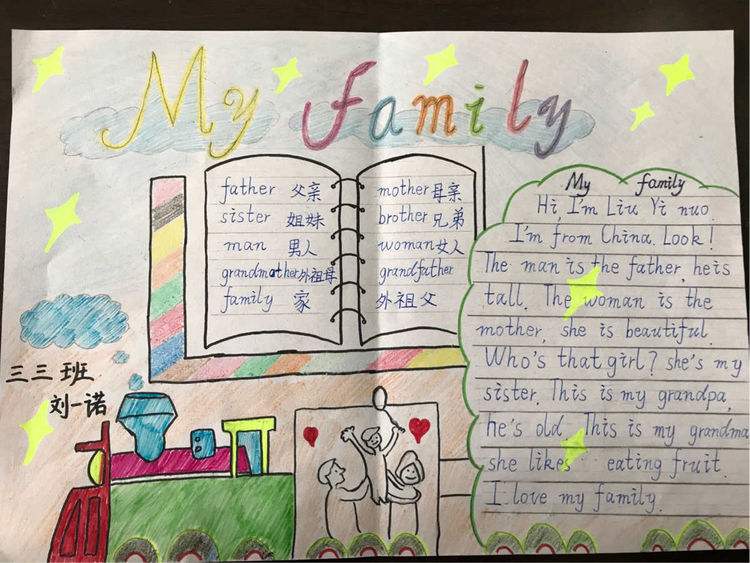 My Family
father 父亲
sister 姐妹
man 男人
grandmather外祖母
family 家
mother母亲
brother兄弟
woman女人
grandfather
外祖父
三三班
刘一诺
My family
Hi, I'm Liu Yi nuo.
I'm from China. Look!
The man is the father, he is
tall. The woman is the
mother, she is beautiful.
Who's that girl? she's my
sister. This is my grandpa,
he's old. This is my grandma
she likes eating fruit.
I love my family.